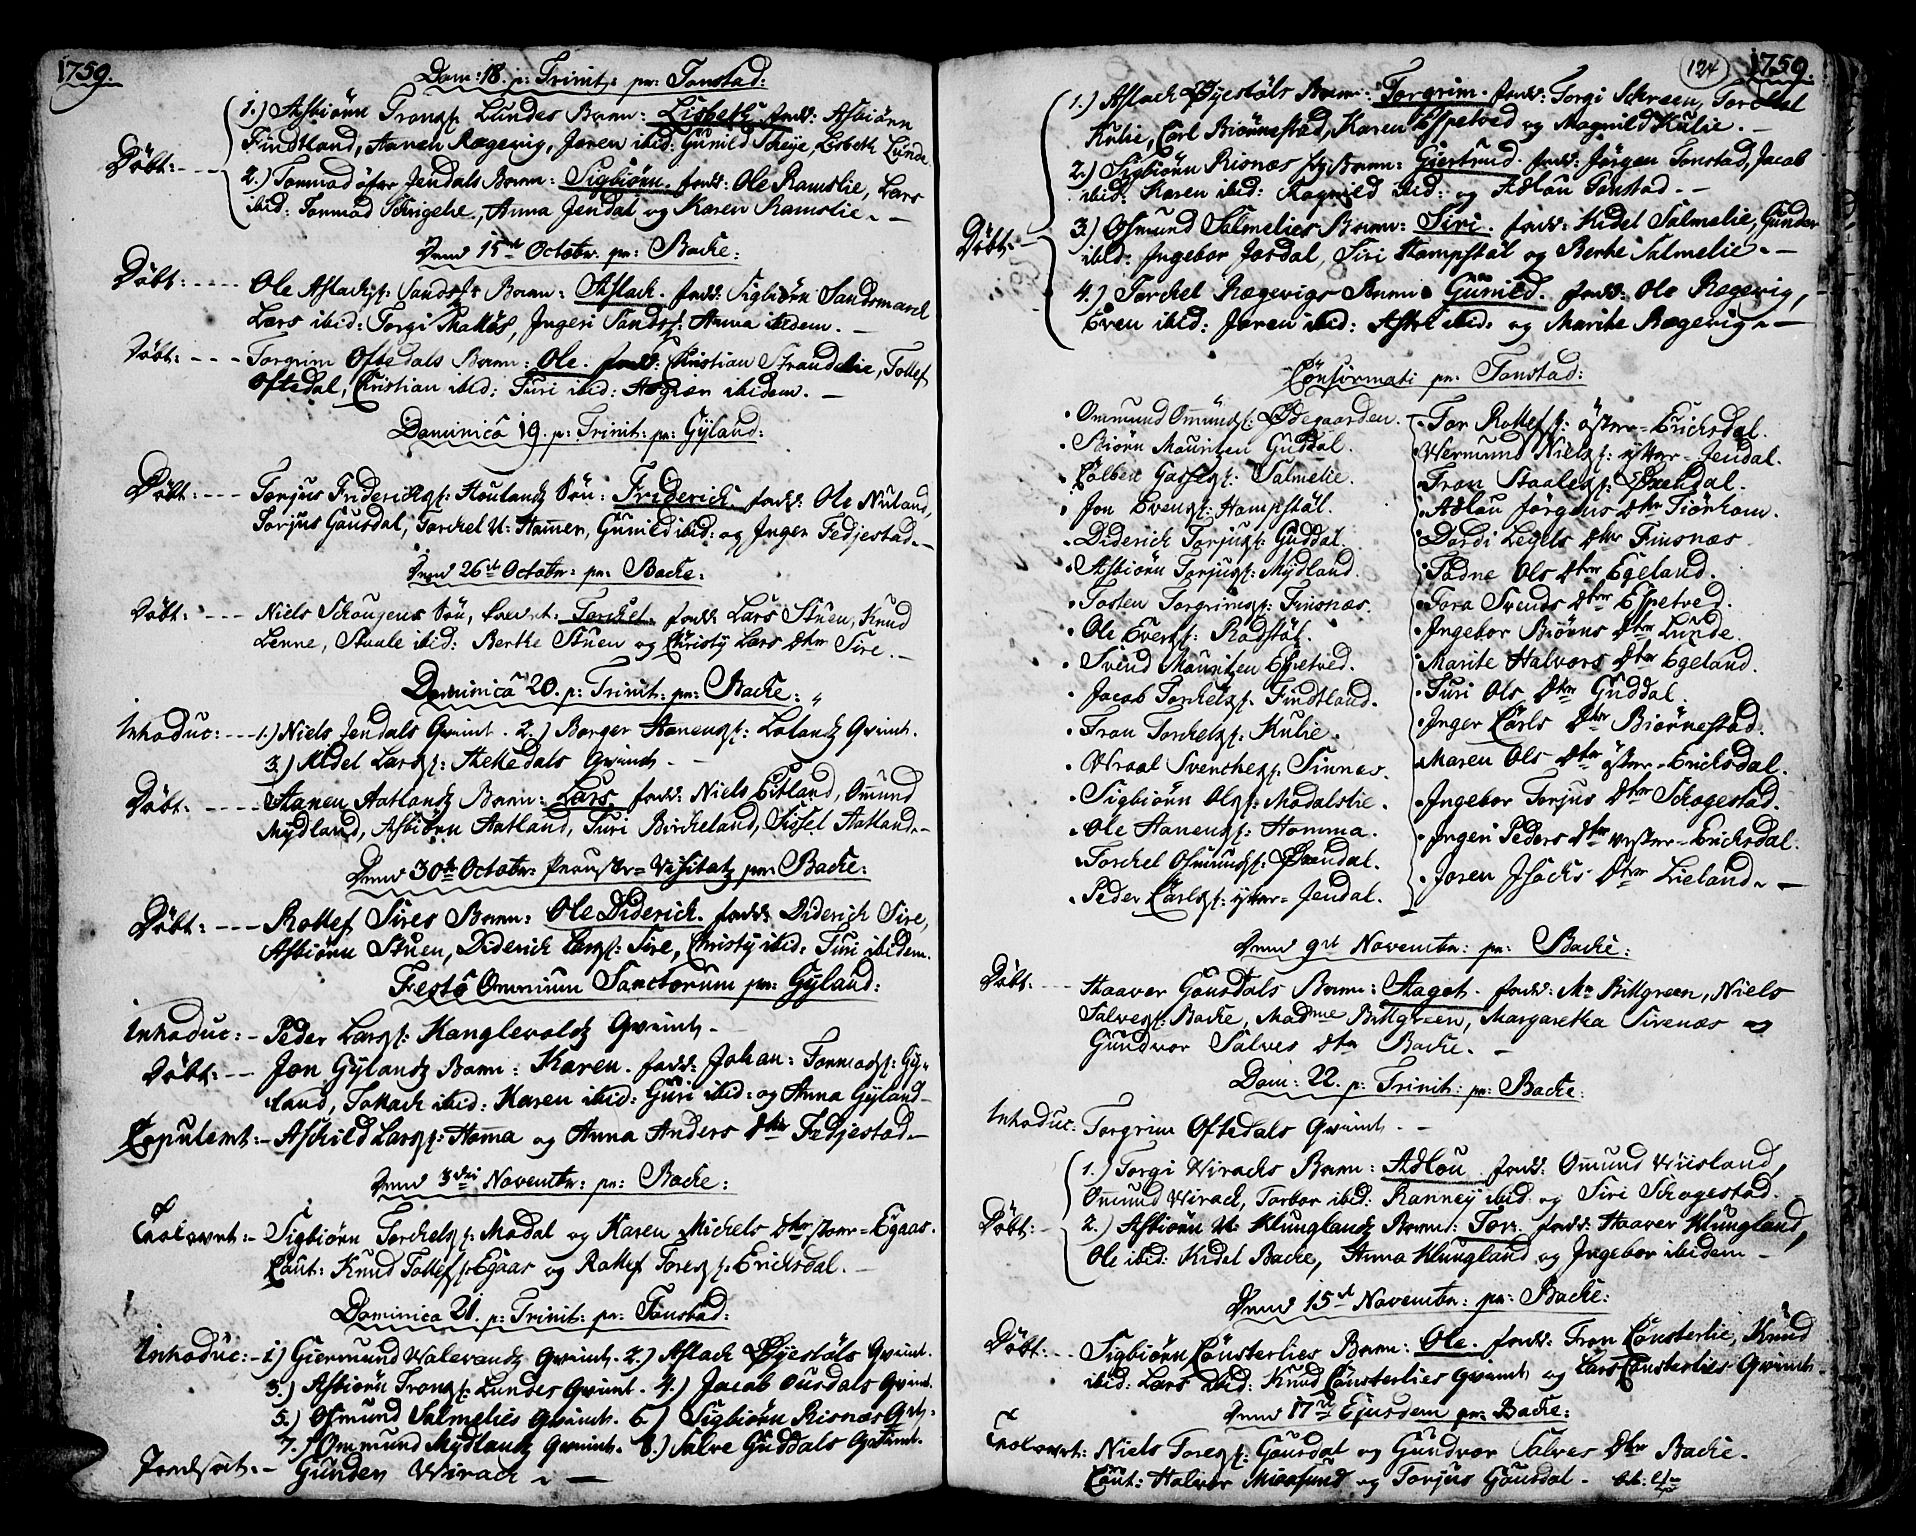 1759.
Dom: 18. p: Trinit: pr: Tonstad:
1.) Asbiörn Tronss: Lundes Barn: Lisbeth. fadd: Asbiörn
Findtland, Hanen Rægevig, Joren ibid: Gunild Scheje, Lisbeth Lunde.
Döbt: - - -
2.) Tonmod öfre Jendals Barn: Sigbiörn. fadd: Ole Ramslie, Lars
ibid: Tonmod Schrigele, Anna Jendal og Karen Ramslie. -
Dend 15de Octobr: pr: Backe:
Döbt: - - - - Ole Aslachss: Sands Barn: Aslack. fadd: Sigbiörn Sandsmarck
Lars ibid: Torgi Mallös, Ingeri Sands: Anna ibidem. -
Döbt: - - - Torgrim Oftedals Barn: Ole. fadd: Christian Strandelie, Tollef
Oftedal, Christian ibid: Turi ibid: Aagier ibidem. -
Dominica 19. p: Trinit: pr: Gyland:
Döbt: - - - Torjus Friderichss: Houlands Sön: Friderich. fadd: Ole Nuland,
Torjus Gousdal, Torchel N: Hommen, Gunild ibid: og Inger Fedjestad. -
Dend 26de Octobr: pr: Backe:
Döbt: - - - Niels Schougens Sön, kaldet: Torchel. fadd: Lars Stuen, Knud
Lenne, Staale ibid: Berthe Stuen og Christy Lars Dtr Sire. -
Dominica 20. p: Trinit: pr: Backe:
Introduc: - - - 1.) Niels Jendals Qvinde. 2.) Borger Hanenss: Lolands Qvinde.
3.) Kidel Larss: Skekedals Qvinde -
Döbt: - - - - Hanen Aatlands Barn: Lars. fadd: Niels Eitland, Omund
Mydland, Asbiörn Aatland, Turi Birckeland, Sissel Aatland. -
Dend 30de Octobr: Prouste-Visitatz pr: Backe:
Döbt: - - - Rollef Sires Barn: Ole Diderich. fadd: Diderich Sire,
Asbiörn Stuen, Diderich Larss: Sire, Christy ibid: Turi ibidem.
Festo Omnium Sanctorum pr: Gyland:
Introduc: - Peder Larss: Kanglevolds Qvinde -
Döbt: - - Jon Gylands Barn: Karen. fadd: Johan: Tonmodss: Gy-
land, Tollack ibid: Karen ibid: Guri ibid: og Anna Gyland -
Copuleret: - Aschild Larss: Homma og Anna Anders Dtr Fedjestad -
Dend 3die Novembr: pr: Backe:
Trolovet: - Sigbiörn Torchelss: Modal og Karen Michels Dtr store-Egaas.
Caut: Knud Tollefss: Egaas og Rollef Toress: Ericksdal. -
Dominica 21. p: Trinit: pr: Tonstad:
Introduc: - 1.) Giermund Valevands Qvinde. 2.) Aslack Øyestöls Qvinde.
3.) Asbiörn Tronss: Lundes Qvinde. 4.) Jacob Ousdals Qvinde.
5.) Osmund Salmelies Qvinde. 6.) Sigbiörn Risnæs Qvinde.
7.) Ommund Mydlands Qvinde. 8.) Salve Guddals Qvinde.
Jordsat: - Gunden Virach. -
124
1759.
1.) Aslach Øyestöls Barn: Torgrim. fadd: Torgi Schreen, Torchel
Kulie, Carl Biörnestad, Karen Espetved og Magnild Kulie. -
2.) Sigbiörn Risnæs Barn: Giertrud. fadd: Jörgen Tonstad, Jacob
ibid: Karen ibid: Ragnild ibid: og Adlau Tonstad. -
Döbt: -
3.) Osmund Salmelies Barn: Siri. fadd: Kidel Salmelie, Gunder
ibid: Ingebor Josdal, Siri Hompstöl og Berthe Salmelie. -
4.) Torchel Rægevigs Barn: Gunild. fadd: Ole Rægevig,
Even ibid: Joren ibid: Astri ibid: og Marithe Rægevig. -
Confirmati pr: Tonstad:
Ommund Omundss: Ødegaarden.
Biörn Mauritzen Guddal.
Colben Salmelie.
Jon Evenss: Hompstöl.
Diderich Torjuss: Guddal.
Asbiörn Torjuss: Mydland.
Tosten Torgrimss: Finsnæs.
Ole Evenss: Rödstöl.
Svend Mauritzen Espetved.
Jacob Torchelss: Findtland.
Tron Torchelss: Kulie.
Wraal Svenchess: Sinnæs.
Sigbiörn Olss: Modalslie.
Ole Hanenss: Homma.
Torchel Osmundss: Øxendal.
Peder Carlss: yttre-Jendal.
Tor Rollefss: östre-Ericksdal.
Wermund Nielss: yttre-Jendal.
Tron Staaless: Øxendal.
Adlau Jörgens Dtr Tiörhom.
Dordi Legels Dtr Finsnæs.
Tadne Ols Dtr Egeland.
Tora Svends Dtr Espetved.
Ingebor Biörns Dtr Lunde.
Marite Halvors Dtr Egeland.
Turi Ols Dtr Guddal.
Inger Carls Dtr Biörnestad.
Maren Ols Dtr östre-Ericksdal.
Ingebor Torjus Dtr Schogestad.
Ingeri Peders Dtr vestre-Ericksdal.
Joren Isachs Dtr Lieland. -
Dend 9de Novembr: pr: Backe:
Döbt: - - - Haaver Gousdals Barn: Aaget. fadd: Mr Billgreen, Niels
Salvess: Backe, Madme Billgreen, Margaretha Sirenæs og
Gundvor Salves Dtr Backe. -
Dom: 22. p: Trinit: pr: Backe:
Introduc: Torgrim Oftedals Qvinde. -
1.) Torgi Virachs Barn: Adlou. fadd: Omund Virsland,
Omund Virack, Torbor ibid: Ranney ibid: og Siri Schogestad.
Döbt: -
2.) Asbiörn N: Klunglands Barn: Tor. fadd: Haaver Klungland,
Ole ibid: Kidel Backe, Anna Klungland og Ingebor ibidem -
Dend 15de Novembr: pr: Backe:
Döbt: - - Sigbiörn Consterlies Barn: Ole. fadd: Tron Consterlie, Knud
ibid: Lars ibid: Knud Consterlies Qvinde og Lars Consterlies Qvinde -
Dend 17de Ejusdem pr: Backe:
Trolovet: Niels Toress: Gousdal og Gundvor Salves Dtr Backe.
Caut: Halvor Moesund og Torjus Gousdal.